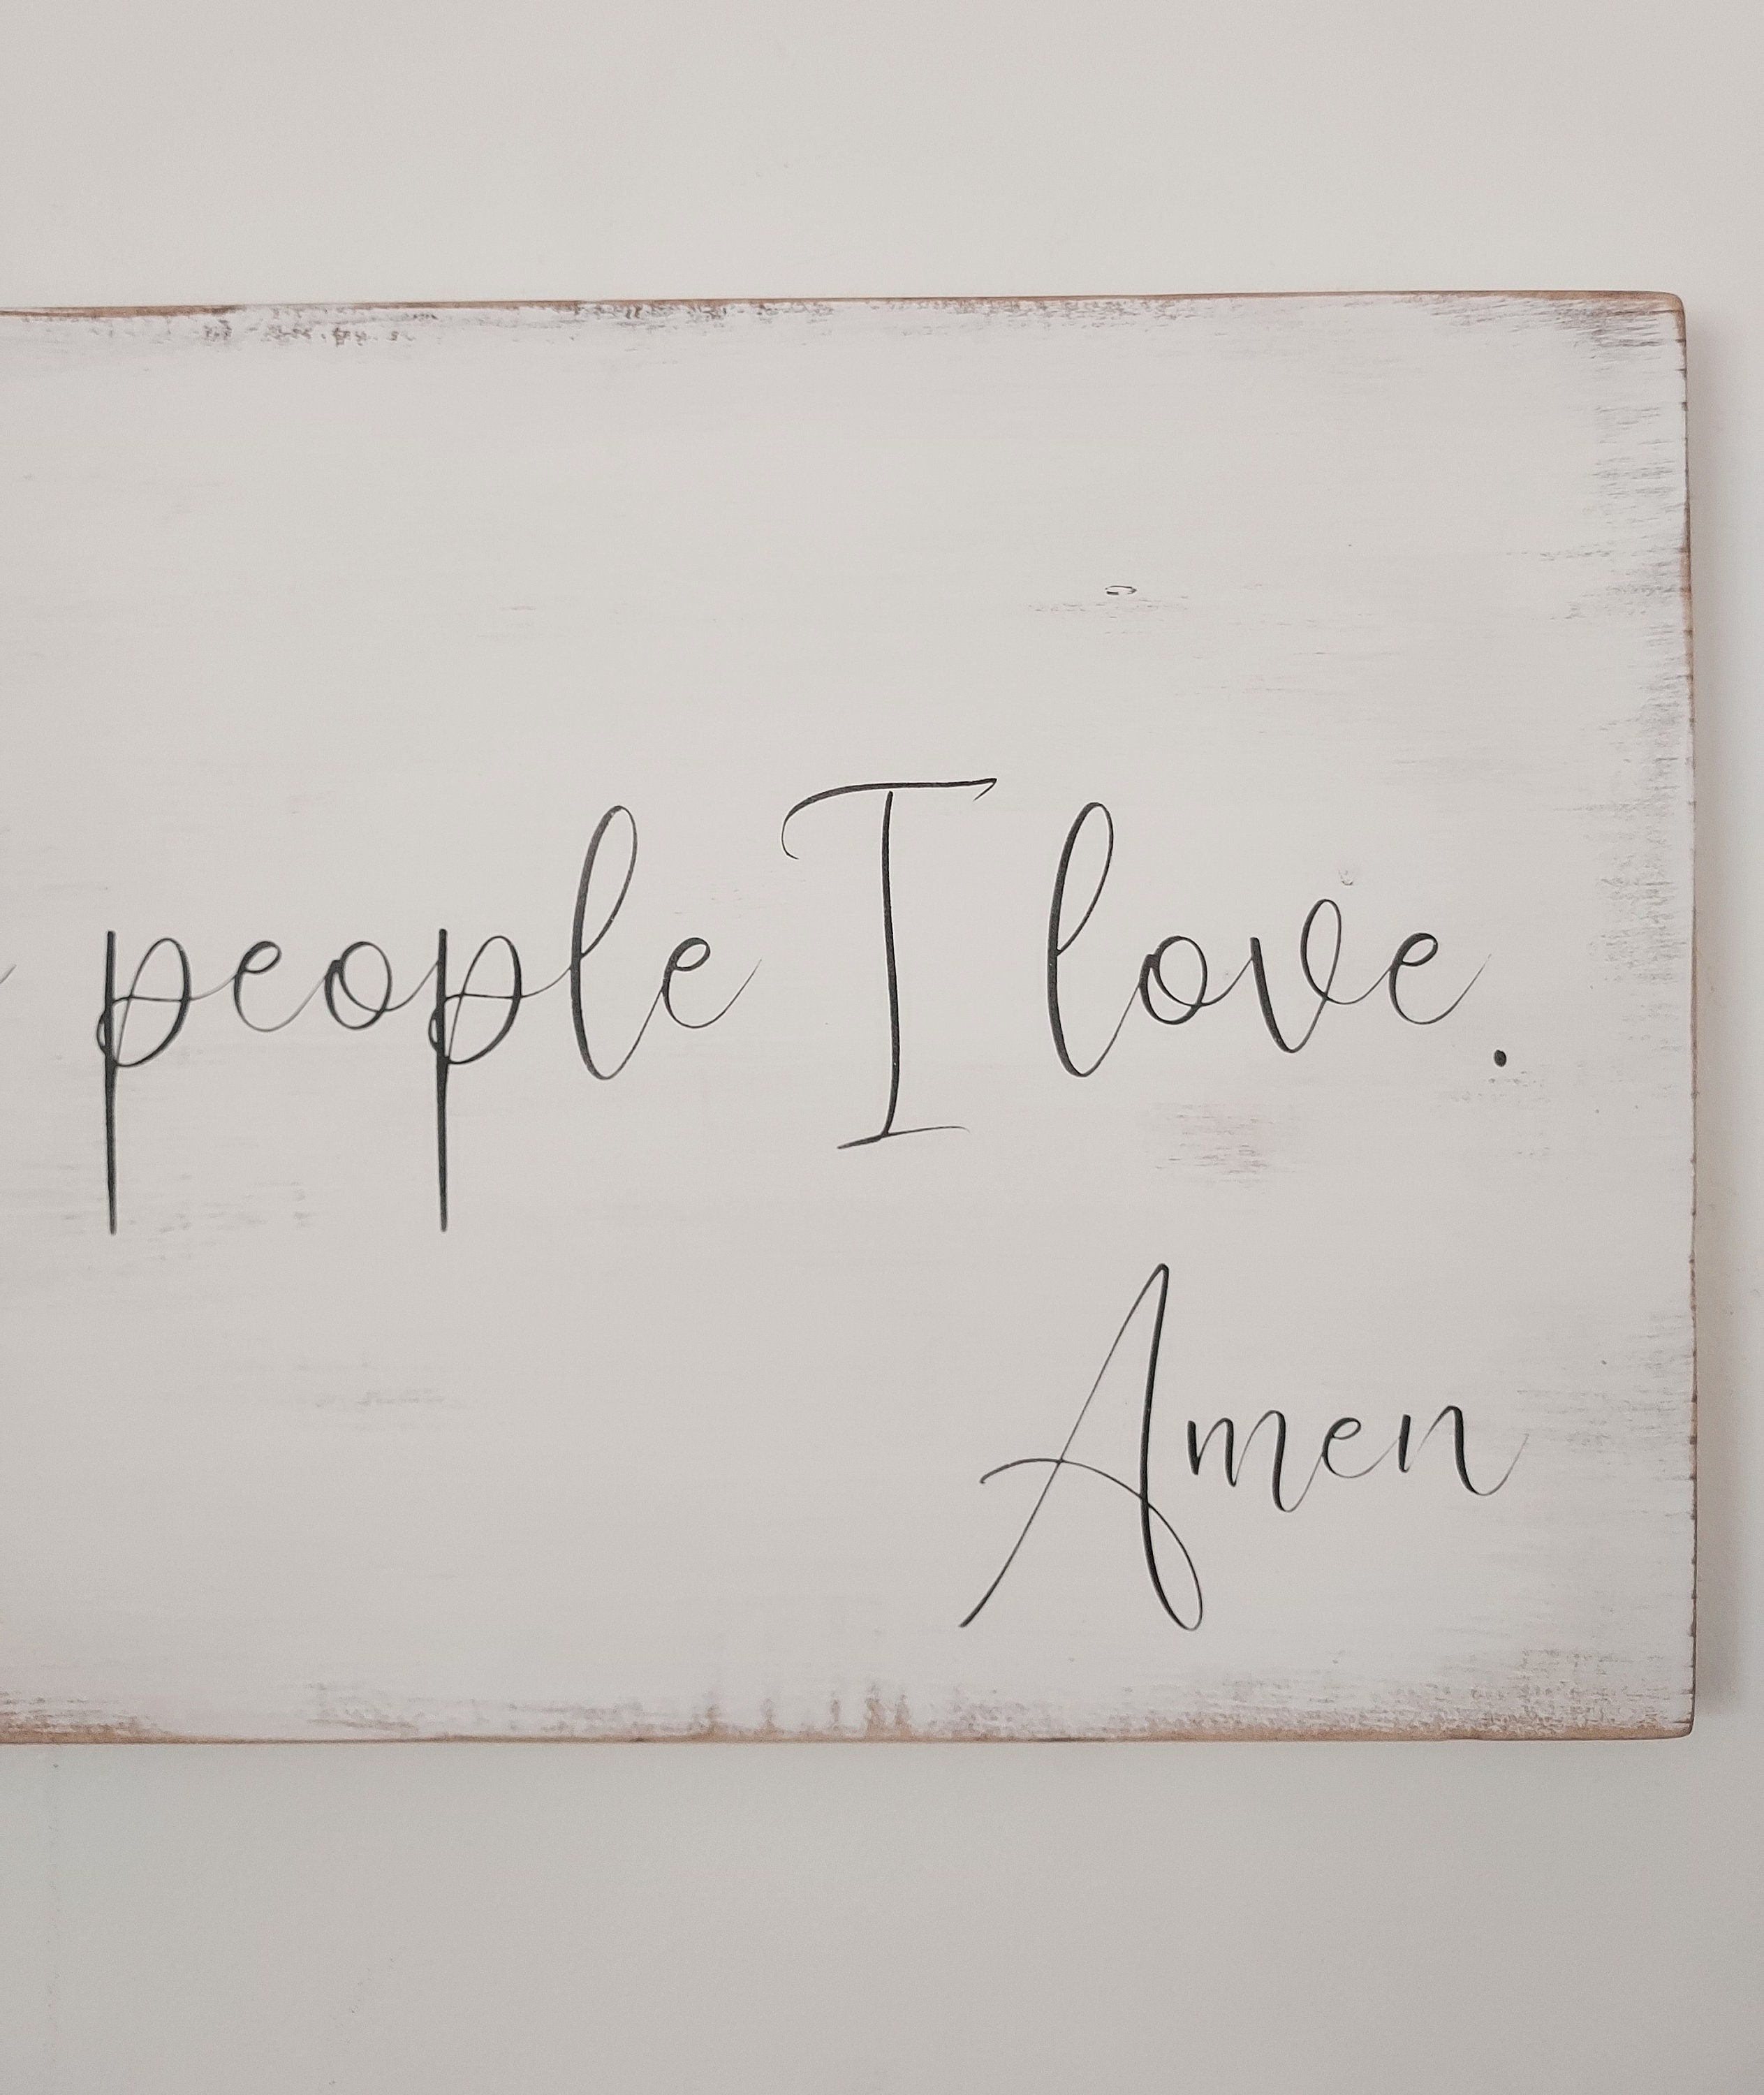 people I love.
Amen